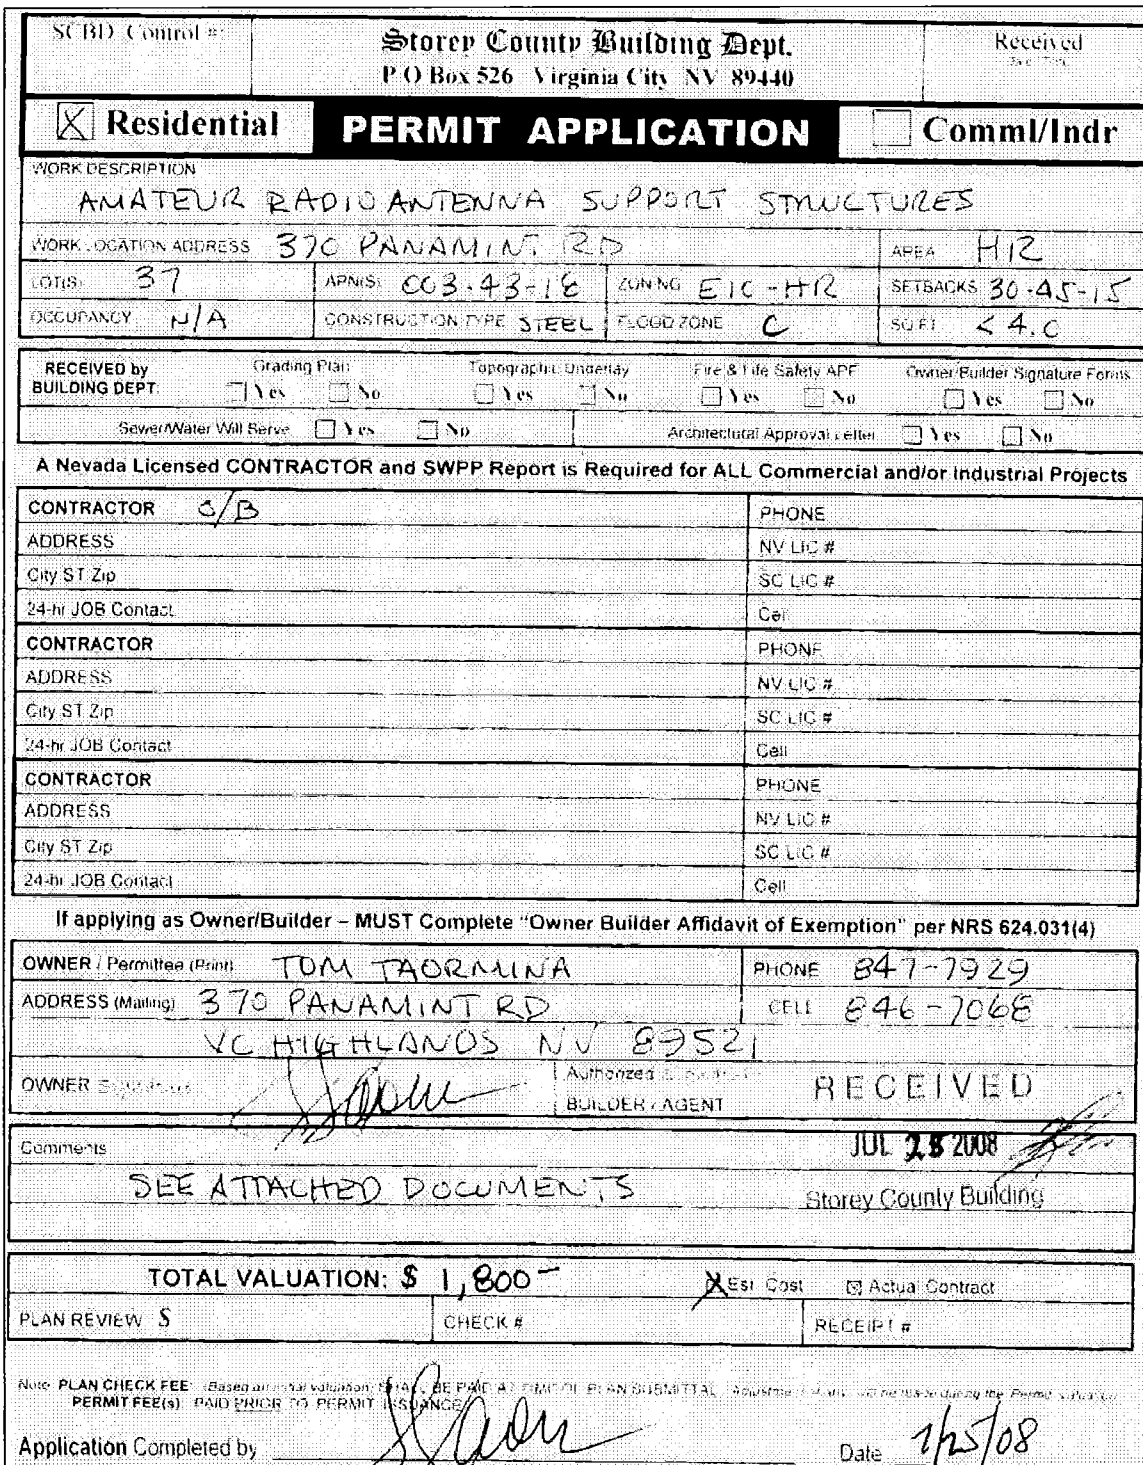 SCBD Control #:
Storey County Building Dept.
P O Box 526 Virginia City NV 89440
Received
Residential
PERMIT APPLICATION
Comml/Indr
WORK DESCRIPTION
AMATEUR RADIO ANTENNA SUPPORT STRUCTURES
WORK LOCATION ADDRESS 370 PANAMINT RD AREA HR
LOT(S) 37 APN(S) 003-43-18 ZONING E1C-HR SETBACKS 30-45-15
OCCUPANCY N/A CONSTRUCTION TYPE STEEL FLOOD ZONE C SQ FT < 4.0
RECEIVED by Grading Plan Topographic Underlay Fire & Life Safety APF Owner/Builder Signature Forms
BUILDING DEPT: Yes No Yes No Yes No Yes No
Sewer/Water Will Serve Yes No Architectural Approval Letter Yes No
A Nevada Licensed CONTRACTOR and SWPP Report is Required for ALL Commercial and/or Industrial Projects
CONTRACTOR O/B PHONE
ADDRESS NV LIC #
City ST Zip SC LIC #
24-hr JOB Contact Cell
CONTRACTOR PHONE
ADDRESS NV LIC #
City ST Zip SC LIC #
24-hr JOB Contact Cell
CONTRACTOR PHONE
ADDRESS NV LIC #
City ST Zip SC LIC #
24-hr JOB Contact Cell
If applying as Owner/Builder – MUST Complete “Owner Builder Affidavit of Exemption” per NRS 624.031(4)
OWNER / Permittee (Print) TOM TAORMINA PHONE 847-7929
ADDRESS (Mailing) 370 PANAMINT RD CELL 846-7068
VC HIGHLANDS NV 89521
OWNER Signature Authorized
BUILDER / AGENT
RECEIVED
JUL 25 2008
Storey County Building
Comments
SEE ATTACHED DOCUMENTS
TOTAL VALUATION: $ 1,800- Est Cost Actual Contract
PLAN REVIEW $ CHECK # RECEIPT #
Note PLAN CHECK FEE: (Based on total valuation) SHALL BE PAID AT TIME OF PLAN SUBMITTAL will be made during the Permit
PERMIT FEE(s) PAID PRIOR TO PERMIT ISSUANCE
Application Completed by Date 7/25/08